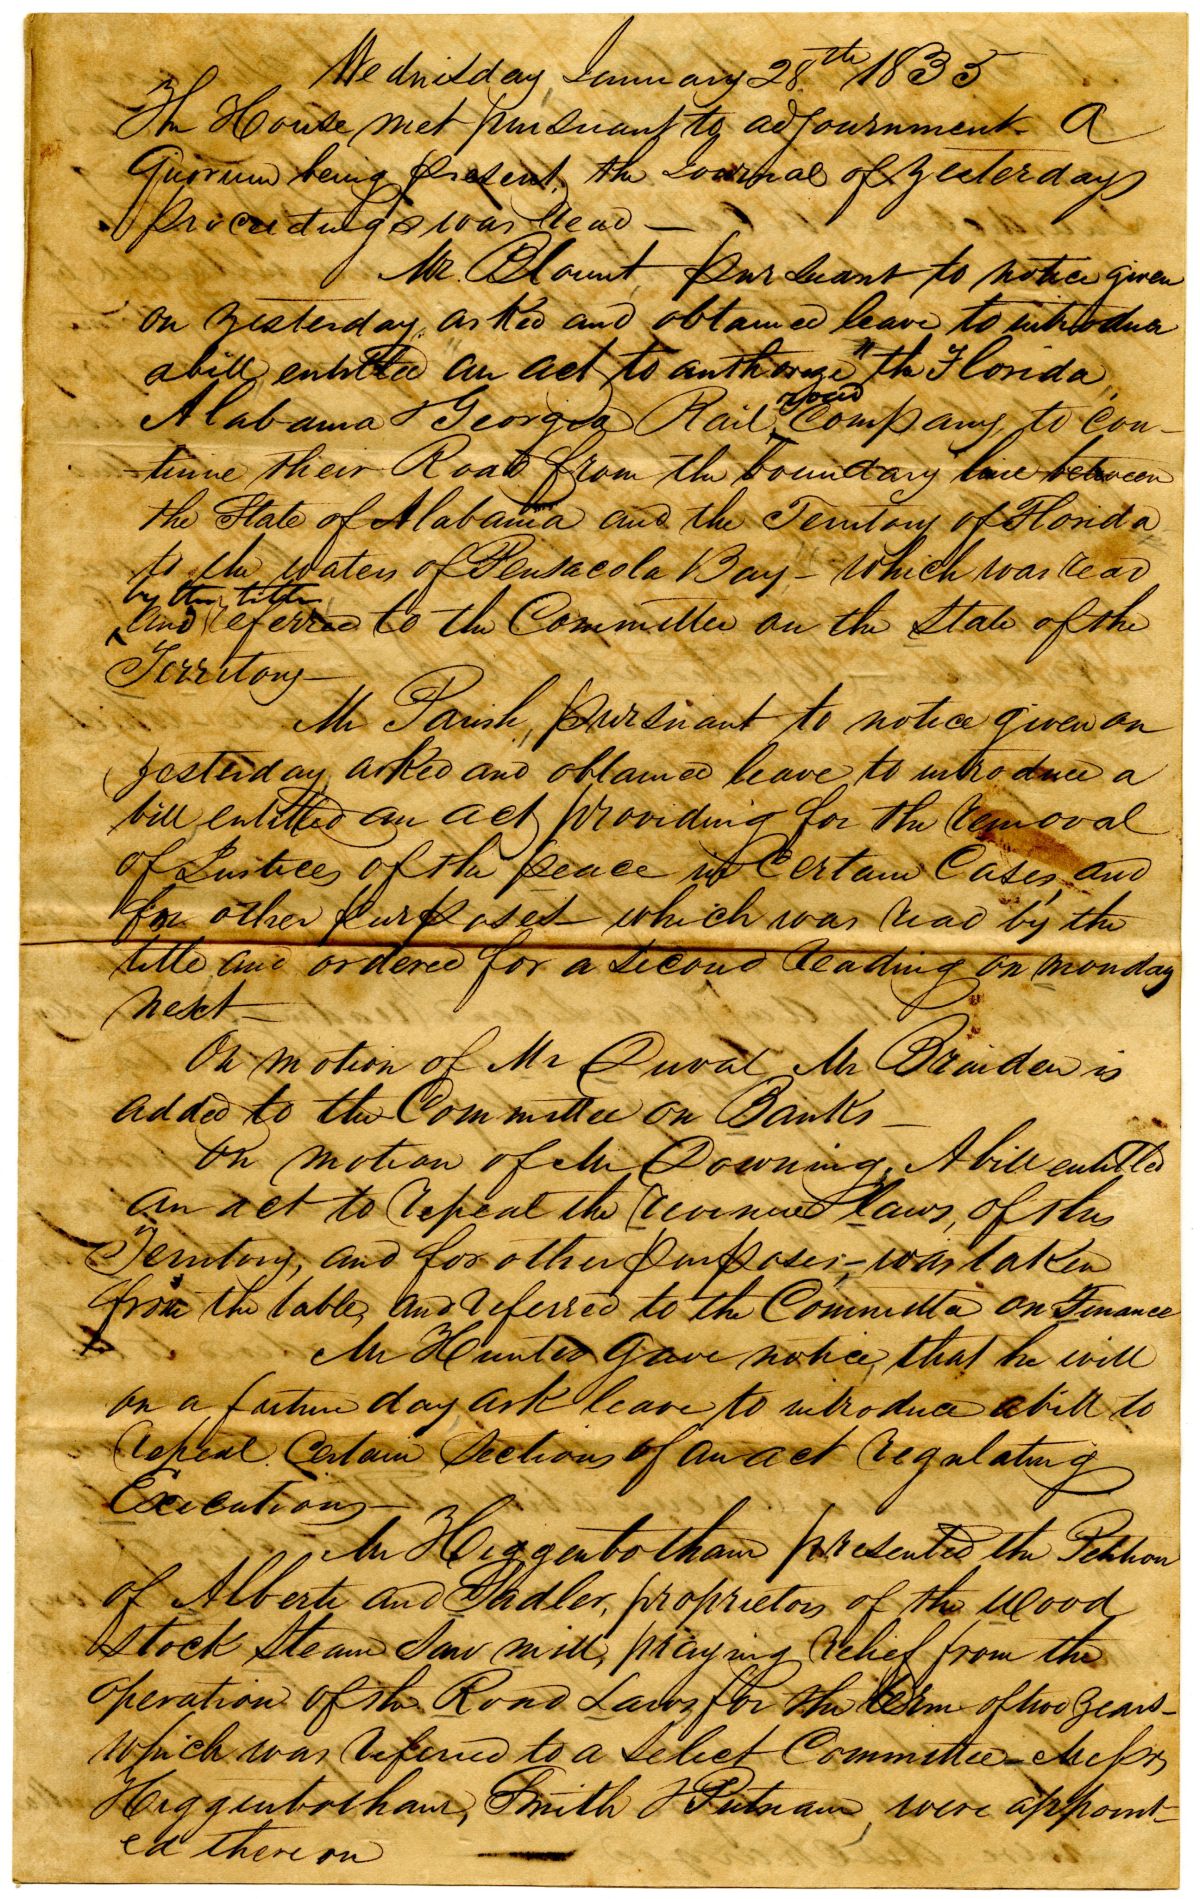 Wednesday January 28th 1835
The House met pursuant to adjournment. A
Quorum being present, the Journal of yesterdays
proceedings was read —
Mr. Blount, pursuant to notice given
on yesterday, asked and obtained leave to introduce
a bill entitled an act to authorize "the Florida,
Alabama & Georgia Rail road Company to con-
tinue their Road from the boundary line between
the State of Alabama and the Territory of Florida
to the waters of Pensacola Bay — which was read
by the title
and referred to the Committee on the State of the
Territory —
Mr Parish, pursuant to notice given on
yesterday, asked and obtained leave to introduce a
bill entitled an act, providing for the removal
of Justices of the peace in Certain Cases, and
for other purposes — which was read by the
title and ordered for a second reading on monday
next —
On motion of Mr Duval, Mr Brairden is
added to the Committee on Banks —
On motion of Mr Downing, A bill entitled
an act to repeal the revenue laws, of this
Territory, and for other purposes, — was taken
from the table, and referred to the Committee on Finance
Mr Hunter gave notice, that he will
on a future day ask leave to introduce a bill to
repeal certain sections of an act regulating
Executions —
Mr Higgenbotham presented the Petition
of Alberti and Sadler, proprietors of the Wood
stock Steam Saw mill, praying relief from the
operation of the Road Laws for the term of two years —
which was referred to a select Committee — Messrs
Higgenbotham, Smith & Putnam, were appoint-
ed thereon —